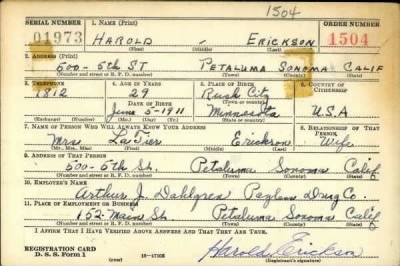 1504
SERIAL NUMBER 1. NAME (Print) ORDER NUMBER
01973 HAROLD - ERICKSON 1504
(First) (Middle) (Last)
2. ADDRESS (Print)
600-5th ST PETALUMA SONOMA CALIF
(Number and street or R. F. D. number) (Town) (County) (State)
3. TELEPHONE 4. AGE IN YEARS 5. PLACE OF BIRTH 6. COUNTRY OF CITIZENSHIP
1812 29 Rush City
DATE OF BIRTH (Town or county)
June 5-1911 Minnesota U.S.A
(Exchange) (No.) (Mo.) (Day) (Yr.) (State or country)
7. NAME OF PERSON WHO WILL ALWAYS KNOW YOUR ADDRESS 8. RELATIONSHIP OF THAT PERSON
Mrs Erickson Wife
(Mr., Mrs., Miss) (First) (Middle) (Last)
9. ADDRESS OF THAT PERSON
600-5th St. Petaluma Sonoma Calif
(Number and street or R. F. D. number) (Town) (County) (State)
10. EMPLOYER'S NAME
Arthur J. Dahlgren Drug Co.
11. PLACE OF EMPLOYMENT OR BUSINESS
152-Main St. Petaluma Sonoma Calif
(Number and street or R. F. D. number) (Town) (County) (State)
I AFFIRM THAT I HAVE VERIFIED ABOVE ANSWERS AND THAT THEY ARE TRUE.
REGISTRATION CARD
D. S. S. Form 1 (over) 16-17105 Harold Erickson
(Registrant's signature)